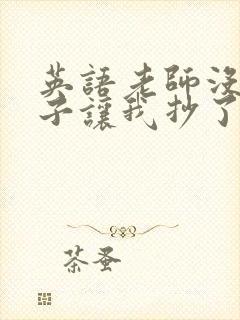 英語老師沒
子讓我抄了
茶蚤